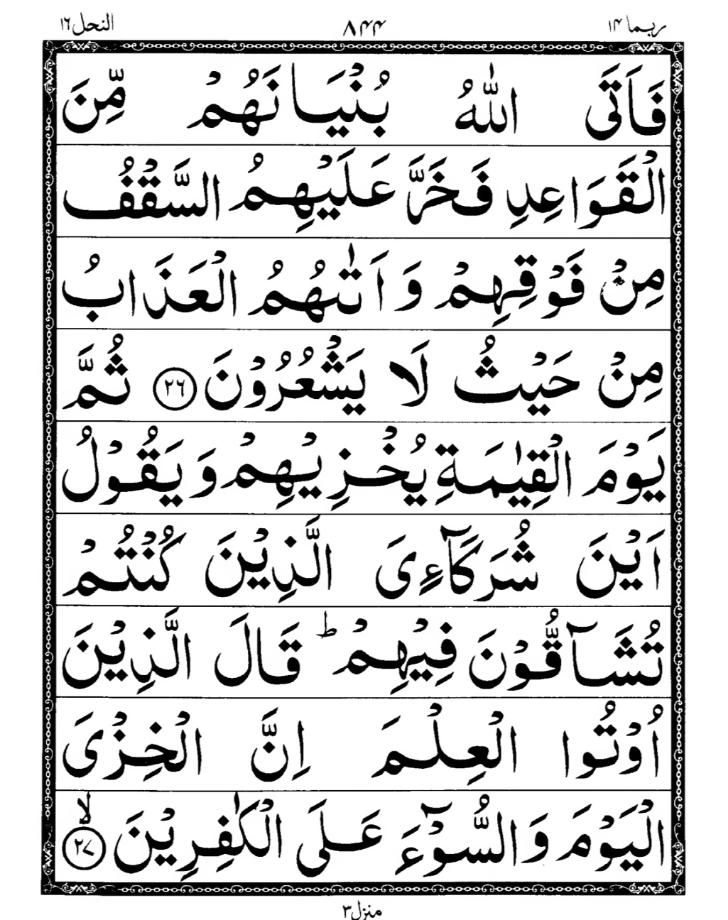 ربما ۱۴ ۸۴۴ النحل ۱۶
فَاَتَی اللّٰهُ بُنْیَانَهُمْ مِّنَ
الْقَوَاعِدِ فَخَرَّ عَلَیْهِمُ السَّقْفُ
مِنْ فَوْقِهِمْ وَاَتٰىهُمُ الْعَذَابُ
مِنْ حَیْثُ لَا یَشْعُرُوْنَ ﴿۲۶﴾ ثُمَّ
یَوْمَ الْقِیٰمَةِ یُخْزِیْهِمْ وَیَقُوْلُ
اَیْنَ شُرَكَآءِیَ الَّذِیْنَ كُنْتُمْ
تُشَآقُّوْنَ فِیْهِمْ ؕ قَالَ الَّذِیْنَ
اُوْتُوا الْعِلْمَ اِنَّ الْخِزْیَ
الْیَوْمَ وَالسُّوْٓءَ عَلَی الْكٰفِرِیْنَ ﴿۲۷﴾ ۙ
منزل ۳